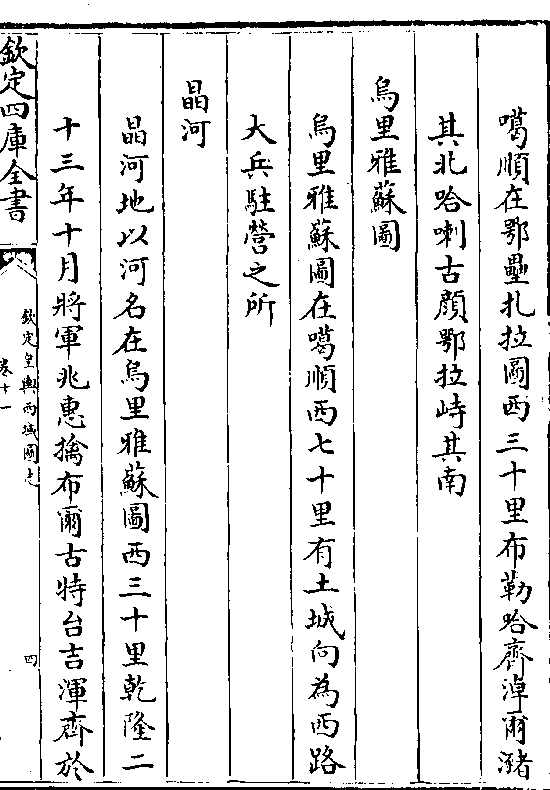 噶順在鄂壘扎拉圖西三十里布勒哈齊淖爾瀦
其北哈喇古顔鄂拉峙其南
烏里雅蘇圖
烏里雅蘇圖在噶順西七十里有土城向為西路
大兵駐營之所
晶河
晶河地以河名在烏里雅蘇圖西三十里乾隆二
十三年十月將軍兆惠擒布爾古特台吉渾齊於
欽定四庫全書
欽定皇輿西域圖志
卷十一
四